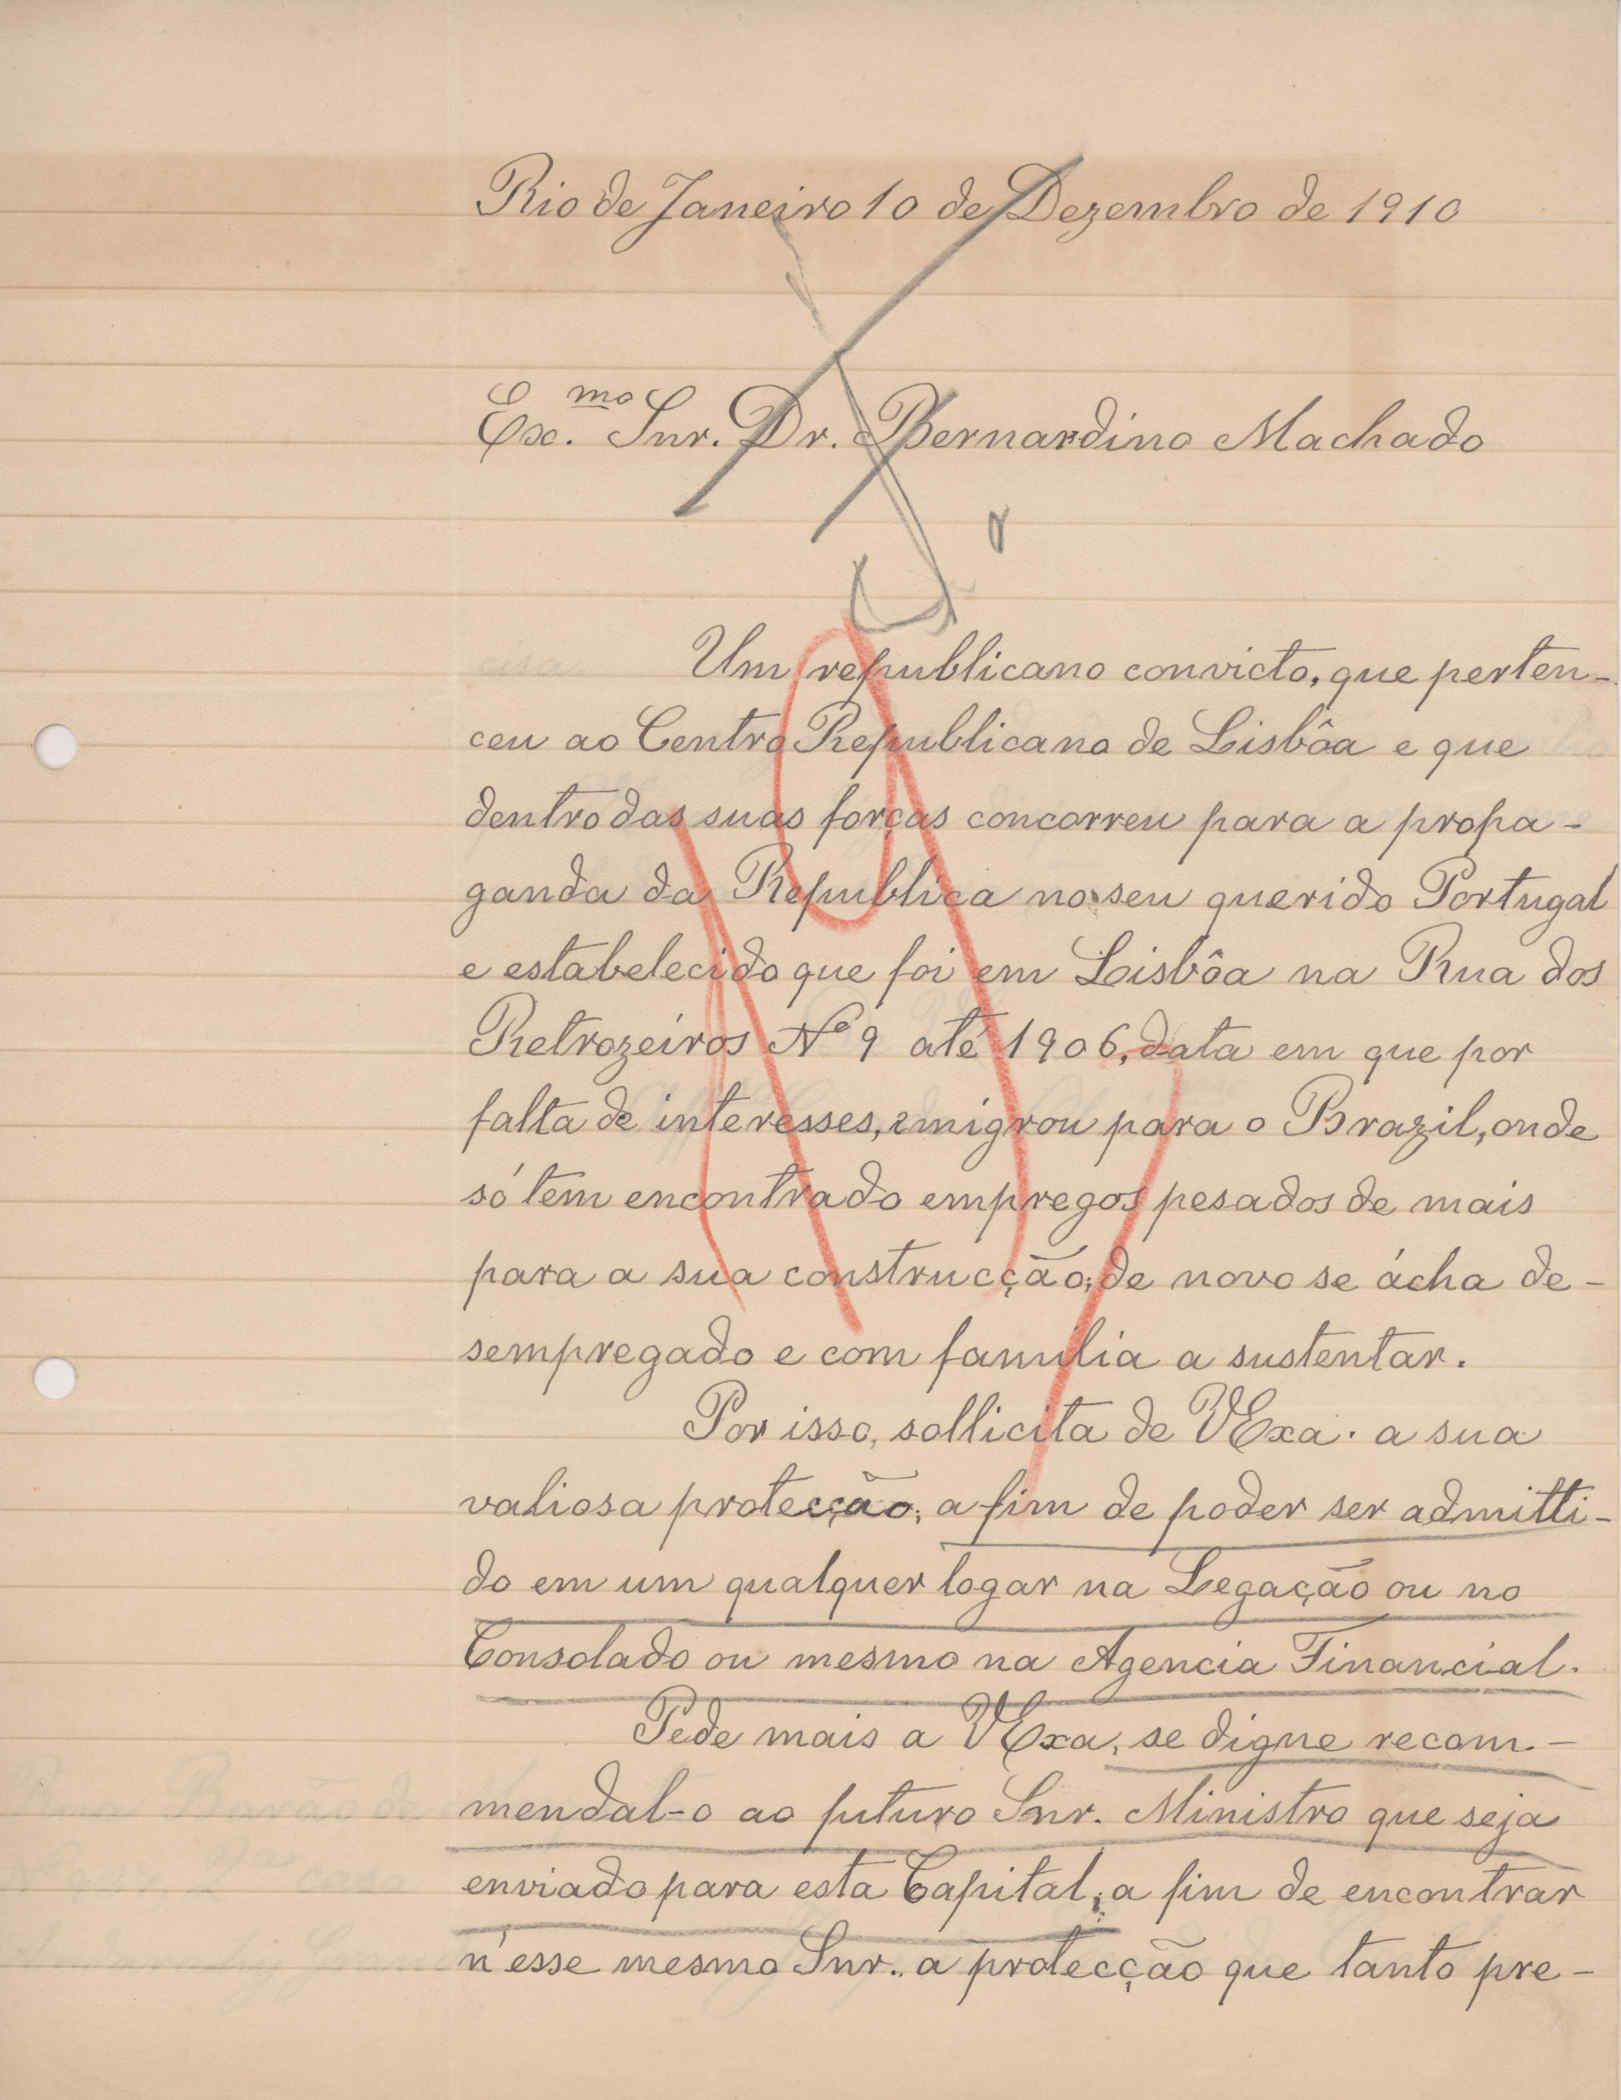 Rio de Janeiro 10 de Dezembro de 1910
Exc.mo Snr. Dr. Bernardino Machado
Um republicano convicto, que perten-
ceu ao Centro Republicano de Lisbôa e que
dentro das suas forças concorreu para a propa-
ganda da Republica no seu querido Portugal
e estabelecido que foi em Lisbôa na Rua dos
Retrozeiros Nº 9 até 1906, data em que por
falta de interesses, emigrou para o Brazil, onde
só tem encontrado empregos pesados de mais
para a sua construcção; de novo se ácha de-
sempregado e com familia a sustentar.
Por isso, sollicita de VExa. a sua
valiosa protecção; a fim de poder ser admitti-
do em um qualquer logar na Legação ou no
Consolado ou mesmo na Agencia Financial.
Pede mais a VExa, se digne recom-
mendal-o ao futuro Snr. Ministro que seja
enviado para esta Capital; a fim de encontrar
n'esse mesmo Snr. a protecção que tanto pre-